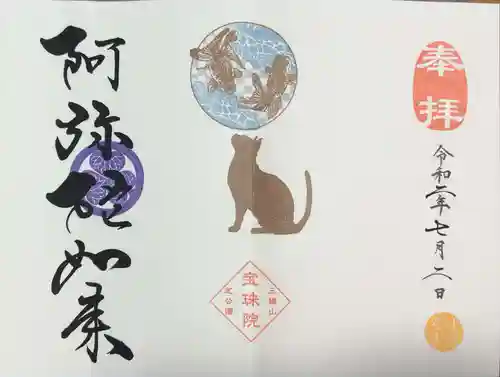 奉拝
令和二年七月二日
三縁山
宝珠院
芝公園
阿弥陀如来